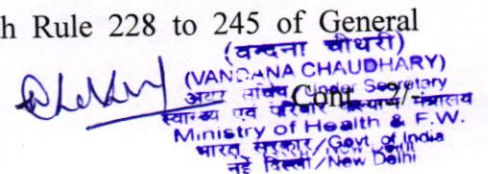 h Rule 228 to 245 of General
(वन्दना चौधरी)
(VANDANA CHAUDHARY)
अवर सचिव/Under Secretary
Cont...2/-
स्वास्थ्य एवं परिवार कल्याण मंत्रालय
Ministry of Health & F.W.
भारत सरकार/Govt. of India
नई दिल्ली/New Delhi